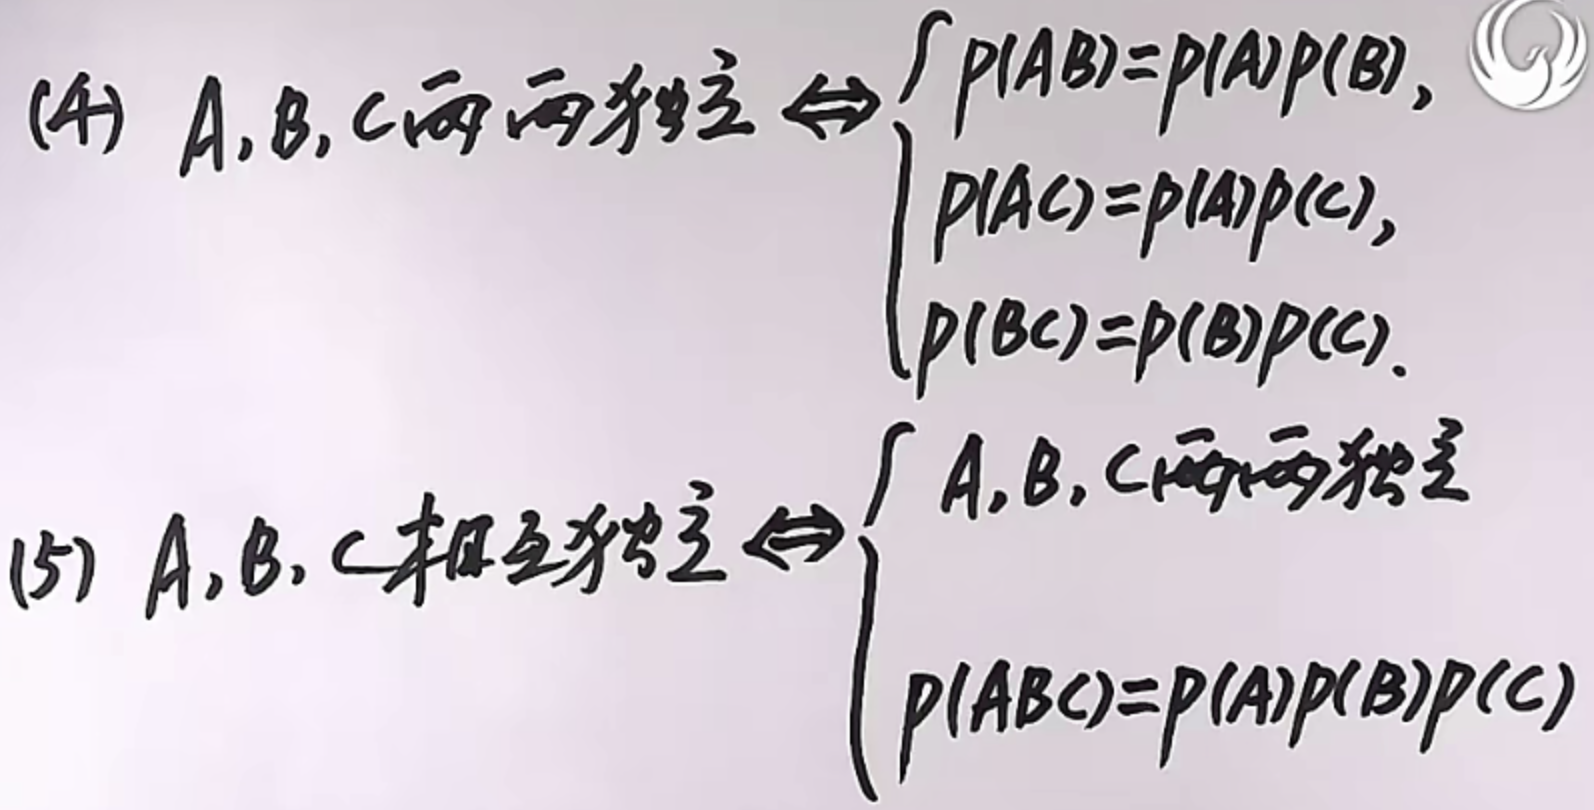 (4) A, B, C两两独立 ⇔ { P(AB)=P(A)P(B),
P(AC)=P(A)P(C),
P(BC)=P(B)P(C).
(5) A, B, C相互独立 ⇔ { A, B, C两两独立
P(ABC)=P(A)P(B)P(C)